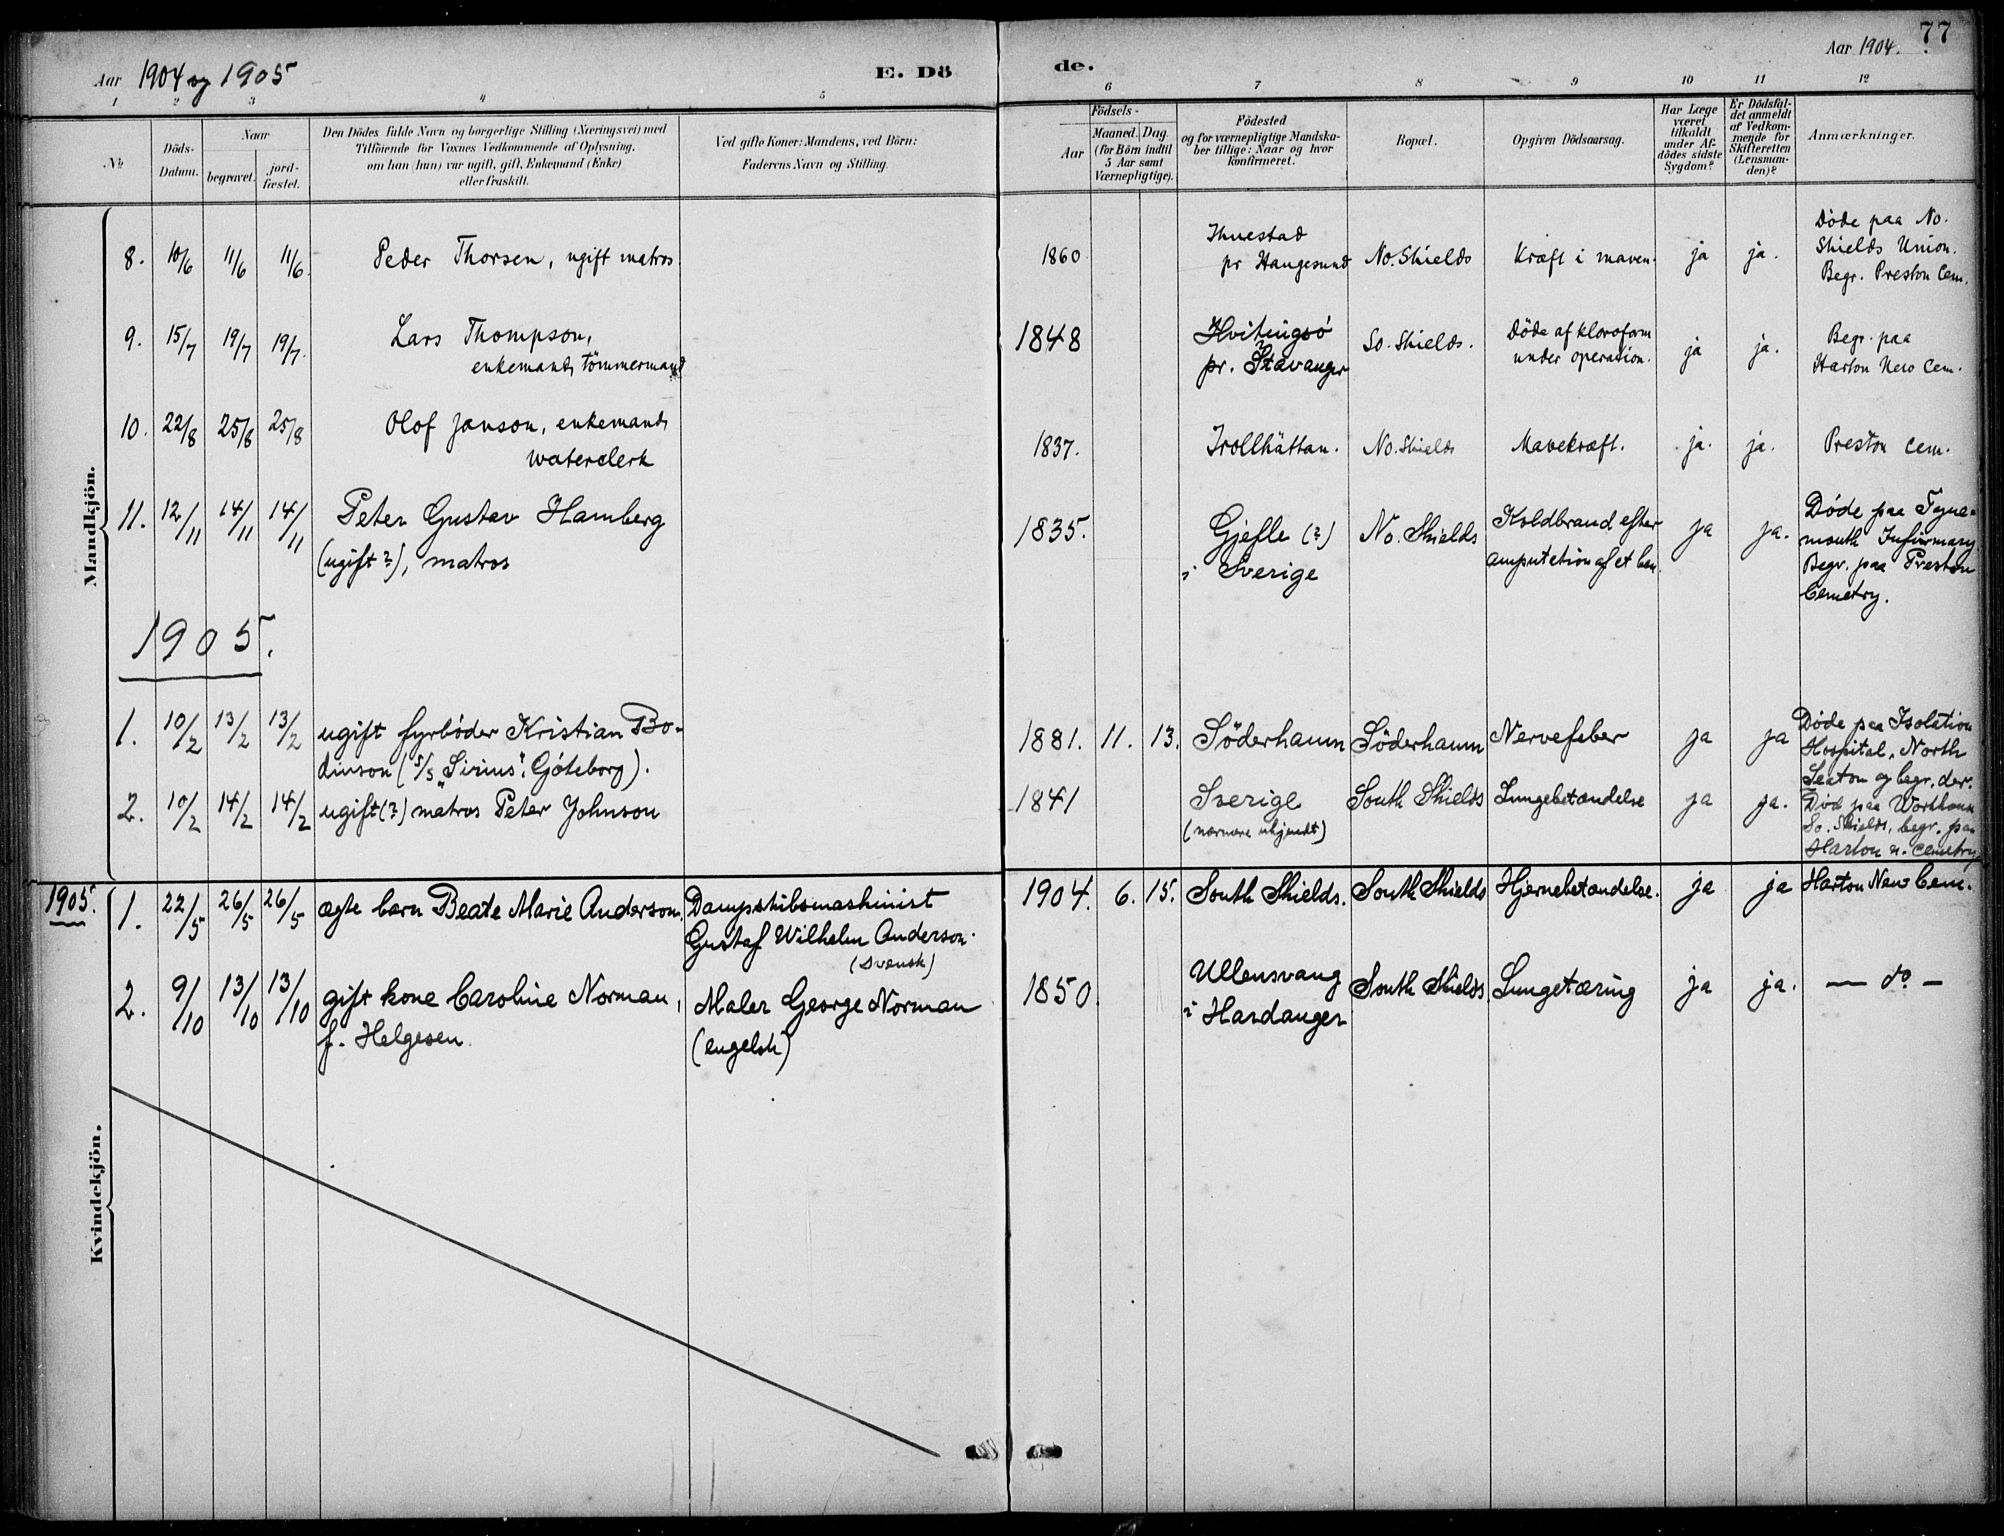 77
Aar 1904 og 1905
E. Dö
de.
Aar 1904.
1 2 3 4 5 6 7 8 9 10 11 12
No
Döds-
Datum.
Naar
begravet.
jord-
fæstet.
Den Dödes fulde Navn og borgerlige Stilling (Næringsvei) med
Tilföiende for Voxnes Vedkommende af Oplysning,
om han (hun) var ugift, gift, Enkemand (Enke)
eller fraskilt.
Ved gifte Koner: Mandens, ved Börn:
Faderens Navn og Stilling.
Födsels-
Aar
Maaned. Dag
(for Börn indtil
5 Aar samt
Værnepligtige).
Födested
og for værnepligtige Mandska-
ber tillige: Naar og hvor
konfirmeret.
Bopæl.
Opgiven Dödsaarsag.
Har Læge
været
tilkaldt
under Af-
dödes sidste
Sygdom?
Er Dödsfal-
det anmeldt
af Vedkom-
mende for
Skifteretten
(Lensman-
den)?
Anmærkninger.
Mandkjön.
8. 10/6 11/6 11/6 Peder Thorsen, ugift matros 1860
pr Haugesund No. Shields Kræft i maven. ja ja.
Døde paa No.
Shields Union.
Begr. Preston Cem.
9. 15/7 19/7 19/7. Lars Thompson,
enkemand, tömmermand
1848 Hvitingsö
pr. Stavanger
So. Shields.
Döde af kloroform
under operation.
ja ja.
Begr. paa
Harton New Cem.
10. 22/8 25/8 25/8 Olof Janson, enkemand,
waterclerk
1837. Trollhättan. No. Shields Mavekræft. ja. ja. Preston Cem.
11. 12/11 14/11 14/11 Peter Gustav Hamberg
(ugift?), matros
1835. Gjefle (?)
i Sverige
No. Shields
Koldbrand efter
amputation af et ben.
ja ja.
Døde paa Tyne-
mouth Infirmary.
Begr. paa Preston
Cemetry.
1905.
1. 10/2 13/2 13/2 ugift fyrbøder Kristian Bo-
dinson (S/S "Sirius", Göteborg).
1881. 11. 13. Söderhamn Söderhamn Nervefeber ja ja
Døde paa Isolation
Hospital, North
Seaton og begr. der.
2. 10/2 14/2 14/2 ugift (?) matros Peter Johnson
1841 Sverige
(nærmere ukjendt)
South Shields Lungebetændelse ja ja.
Død paa Workhouse
So. Shields, begr. paa
Harton n. cemetry
Kvindekjön.
1905. 1. 22/5 26/5 26/5 ægte barn Beate Marie Anderson.
Dampskibsmaskinist
Gustaf Wilhelm Anderson.
(svensk)
1904. 6. 15. South Shields. South Shields Hjernebetændelse. ja ja Harton New Cem.
2. 9/10 13/10 13/10 gift kone Caroline Norman,
f. Helgesen.
Maler George Norman
(engelsk)
1850. Ullensvang
i Hardanger
South Shields Lungetæring ja ja. — do —